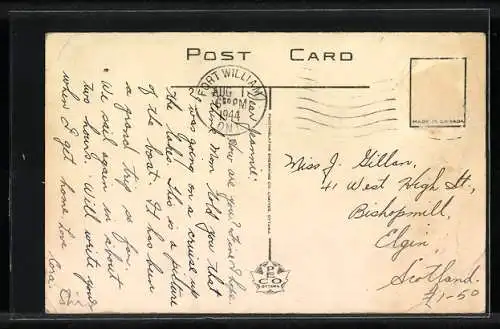 POST CARD
FORT WILLIAM
AUG 1
PM
1944
ONT
MADE IN CANADA
Dear Jeannie:
How are you? Fine I hope.
I think Mom told you that
I was going on a cruise up
the lakes. This is a picture
of the boat. It has been
a grand trip so far.
We sail again in about
two hours. Will write you
when I get home. Love
Cora.
PHOTOGELATINE ENGRAVING CO. LIMITED, OTTAWA
PECO
OTTAWA
Miss J. Gillan,
41 West High St.,
Bishopmill,
Elgin,
Scotland.
£1-50